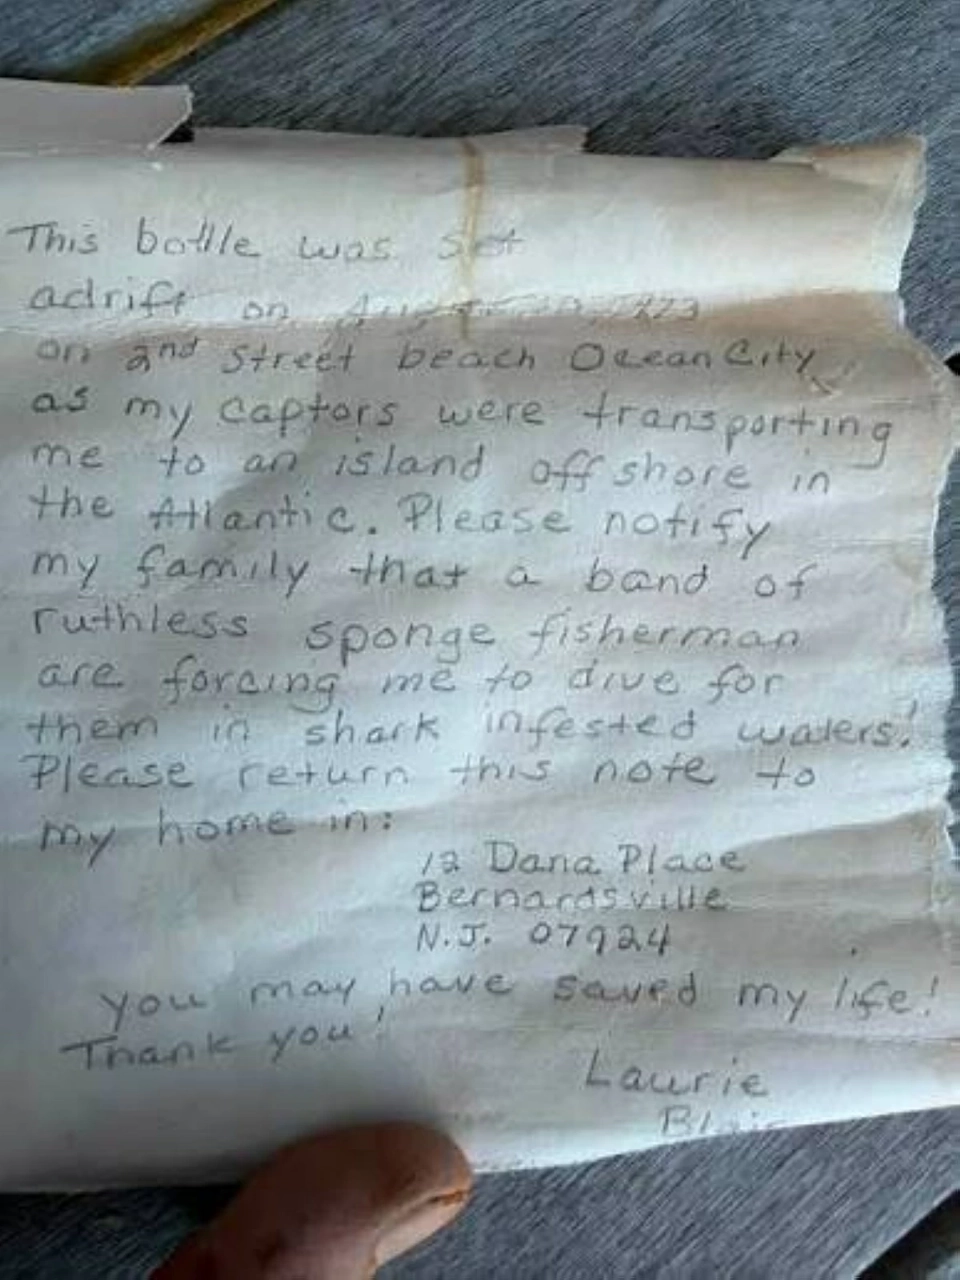 This bottle was set
adrift on
on 2nd Street beach Ocean City
as my captors were transporting
me to an island off shore in
the Atlantic. Please notify
my family that a band of
ruthless sponge fisherman
are forcing me to dive for
them in shark infested waters!
Please return this note to
my home in:
12 Dana Place
Bernardsville
N.J. 07924
you may have saved my life!
Thank you!
Laurie
Blair